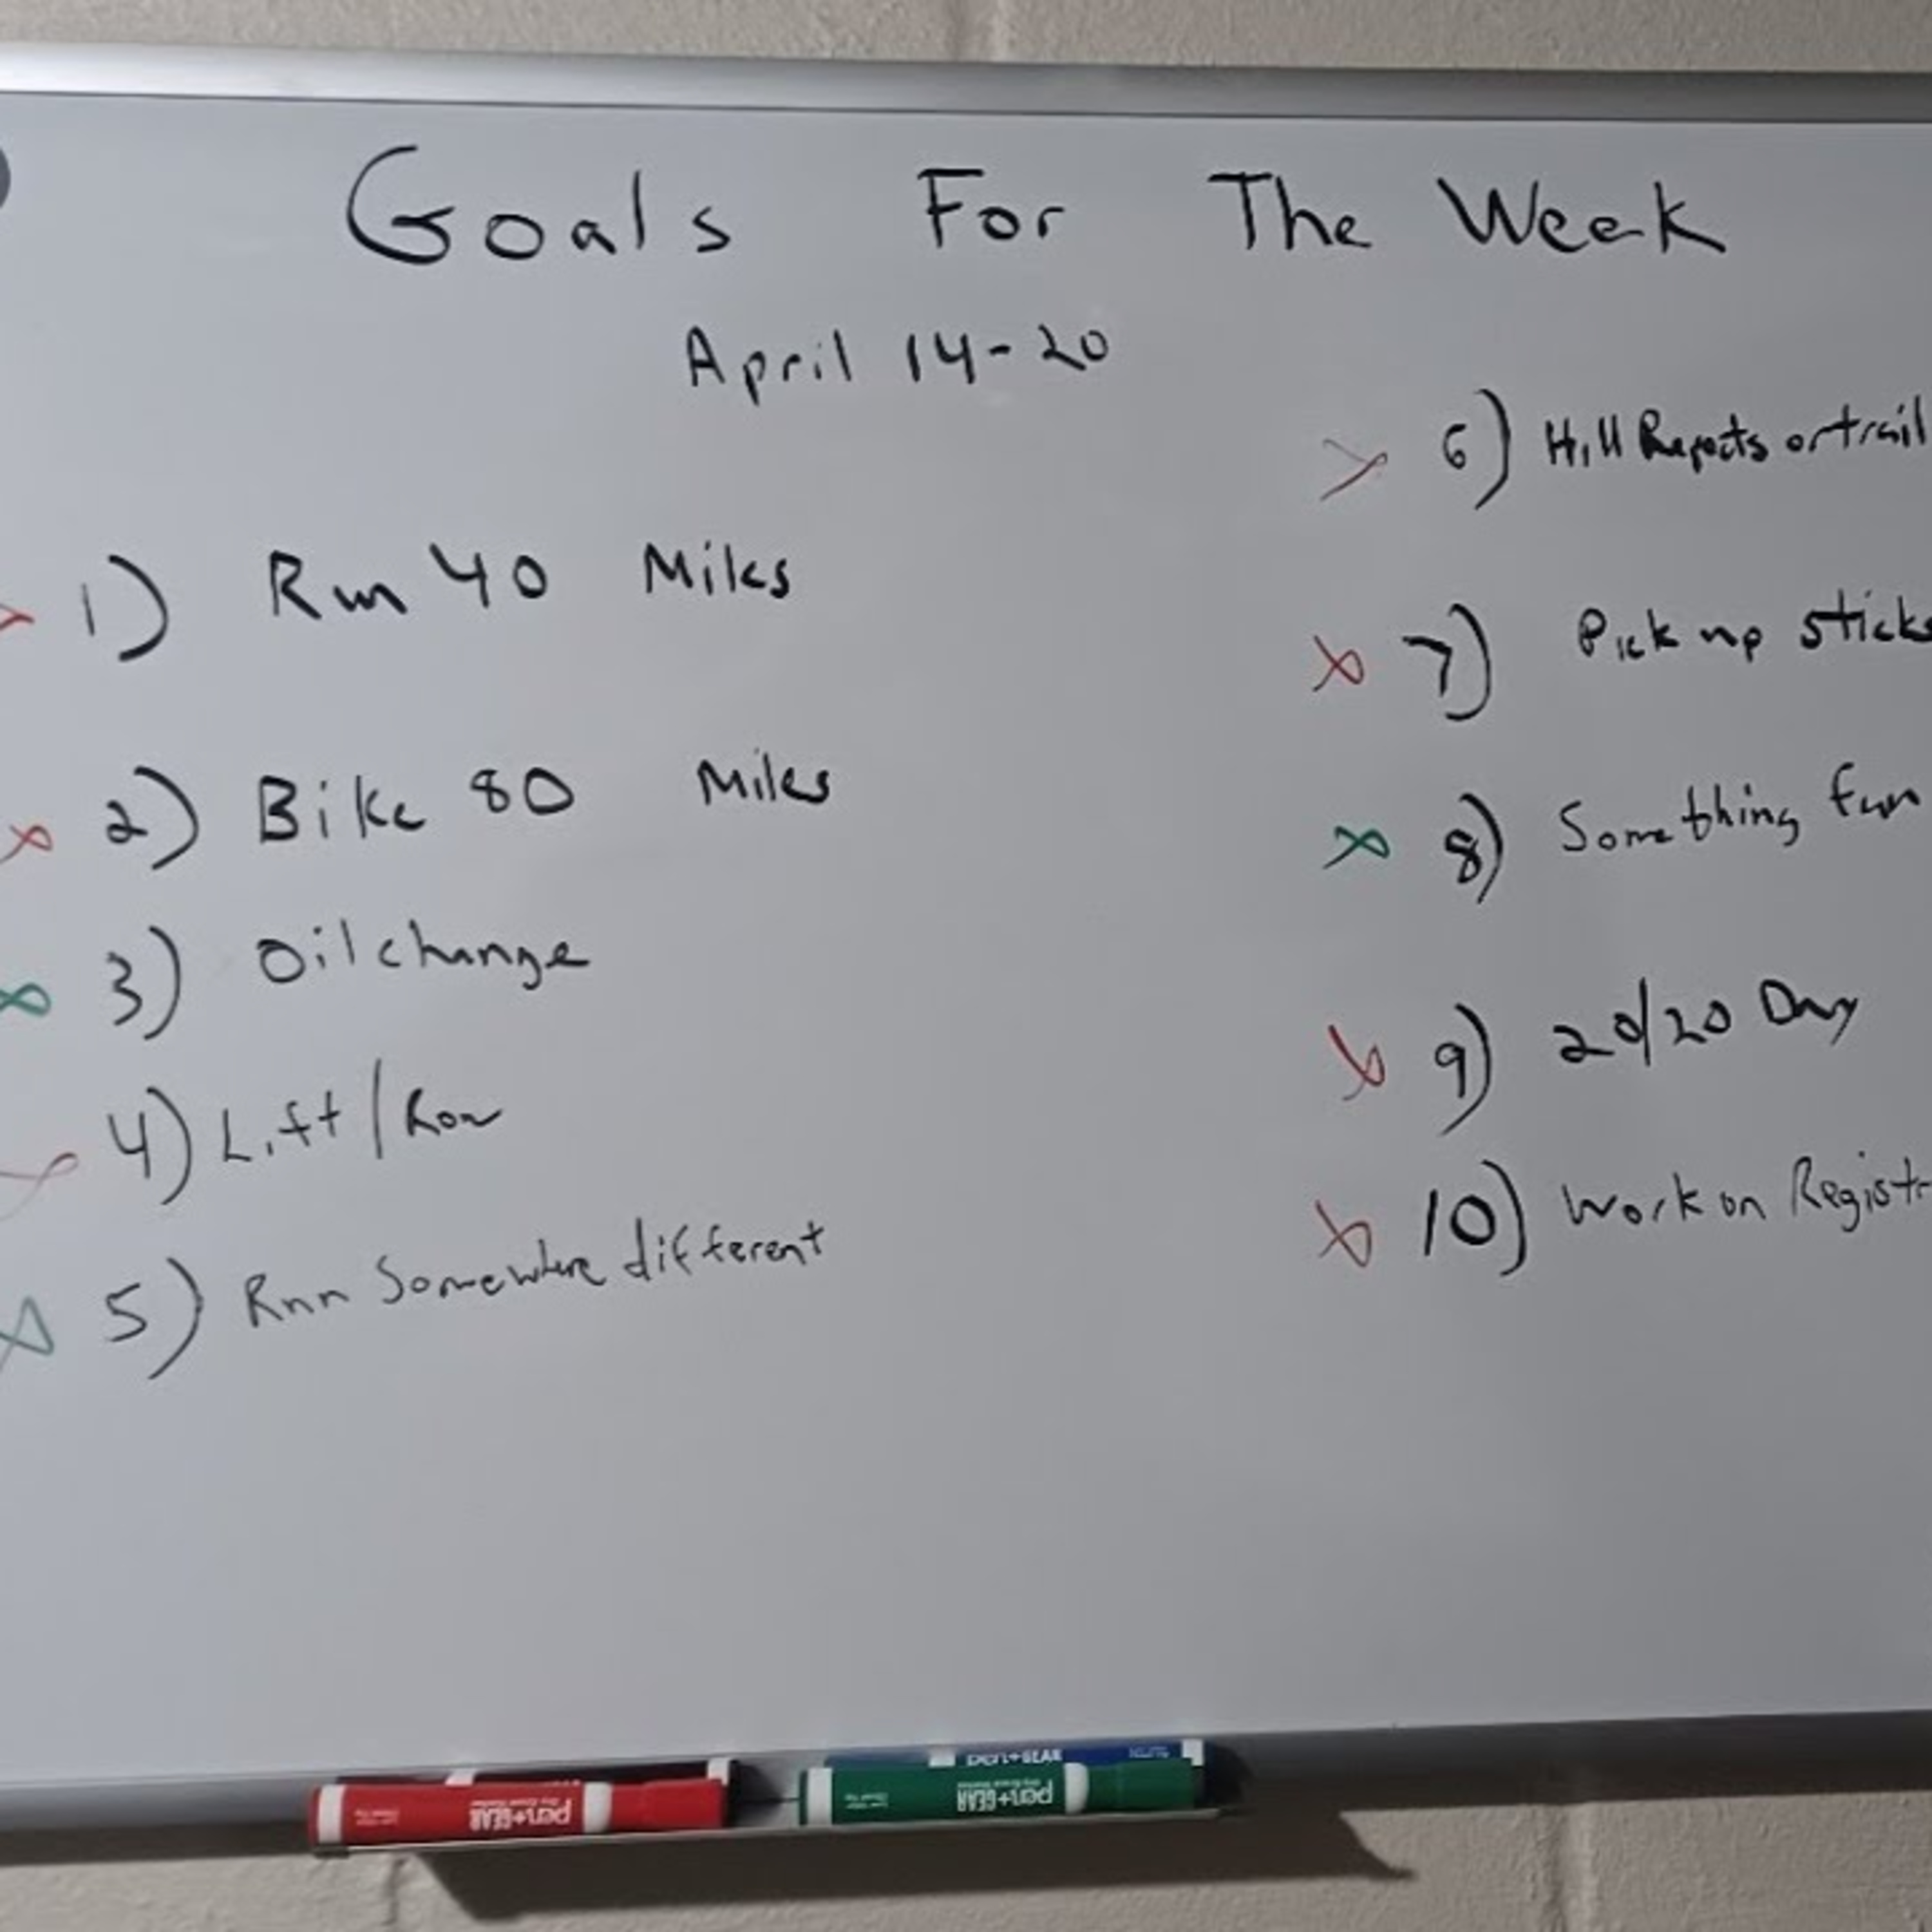 Goals For The Week
April 14-20
1) Run 40 Miles
2) Bike 80 Miles
3) Oil change
4) Lift/Row
5) Run Somewhere different
6) Hill Repeats or trail
7) Pick up sticks
8) Something fun
9) 20/20 Day
10) Work on Registr
pen+GEAR
pen+GEAR
pen+GEAR